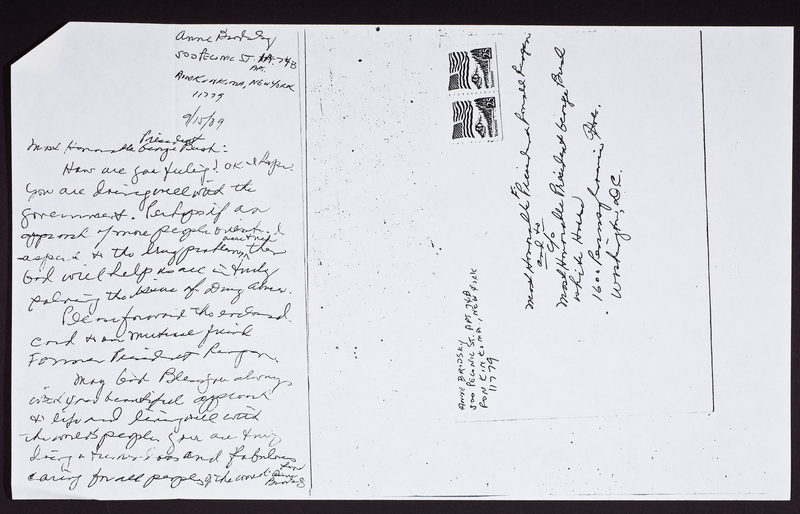 Anne Brodsky
500 Peconic St. Apt. 74B
Ronkonkoma, New York
11779
9/15/89
President
Most Honorable George Bush:
How are you feeling? OK. I hope.
You are doing well with the
government. Perhaps if an
approach of more people
aspect to the drug problem, then
God will help us all in truly
solving the issue of Drug abuse.
Please forward the enclosed
card to our mutual friend
Former President Reagan.
May God Bless you always
with your beautiful approach
to life and living well with
the world's people. You are truly
doing a tremendous and fabulous
caring for all peoples of the world.
Anne
Brodsky
Most Honorable President Ronald Reagan
and to
c/o
Most Honorable President George Bush
White House
1600 Pennsylvania Ave.
Washington, D.C.
Anne Brodsky
500 Peconic St. Apt. 74B
Ronkonkoma, New York
11779